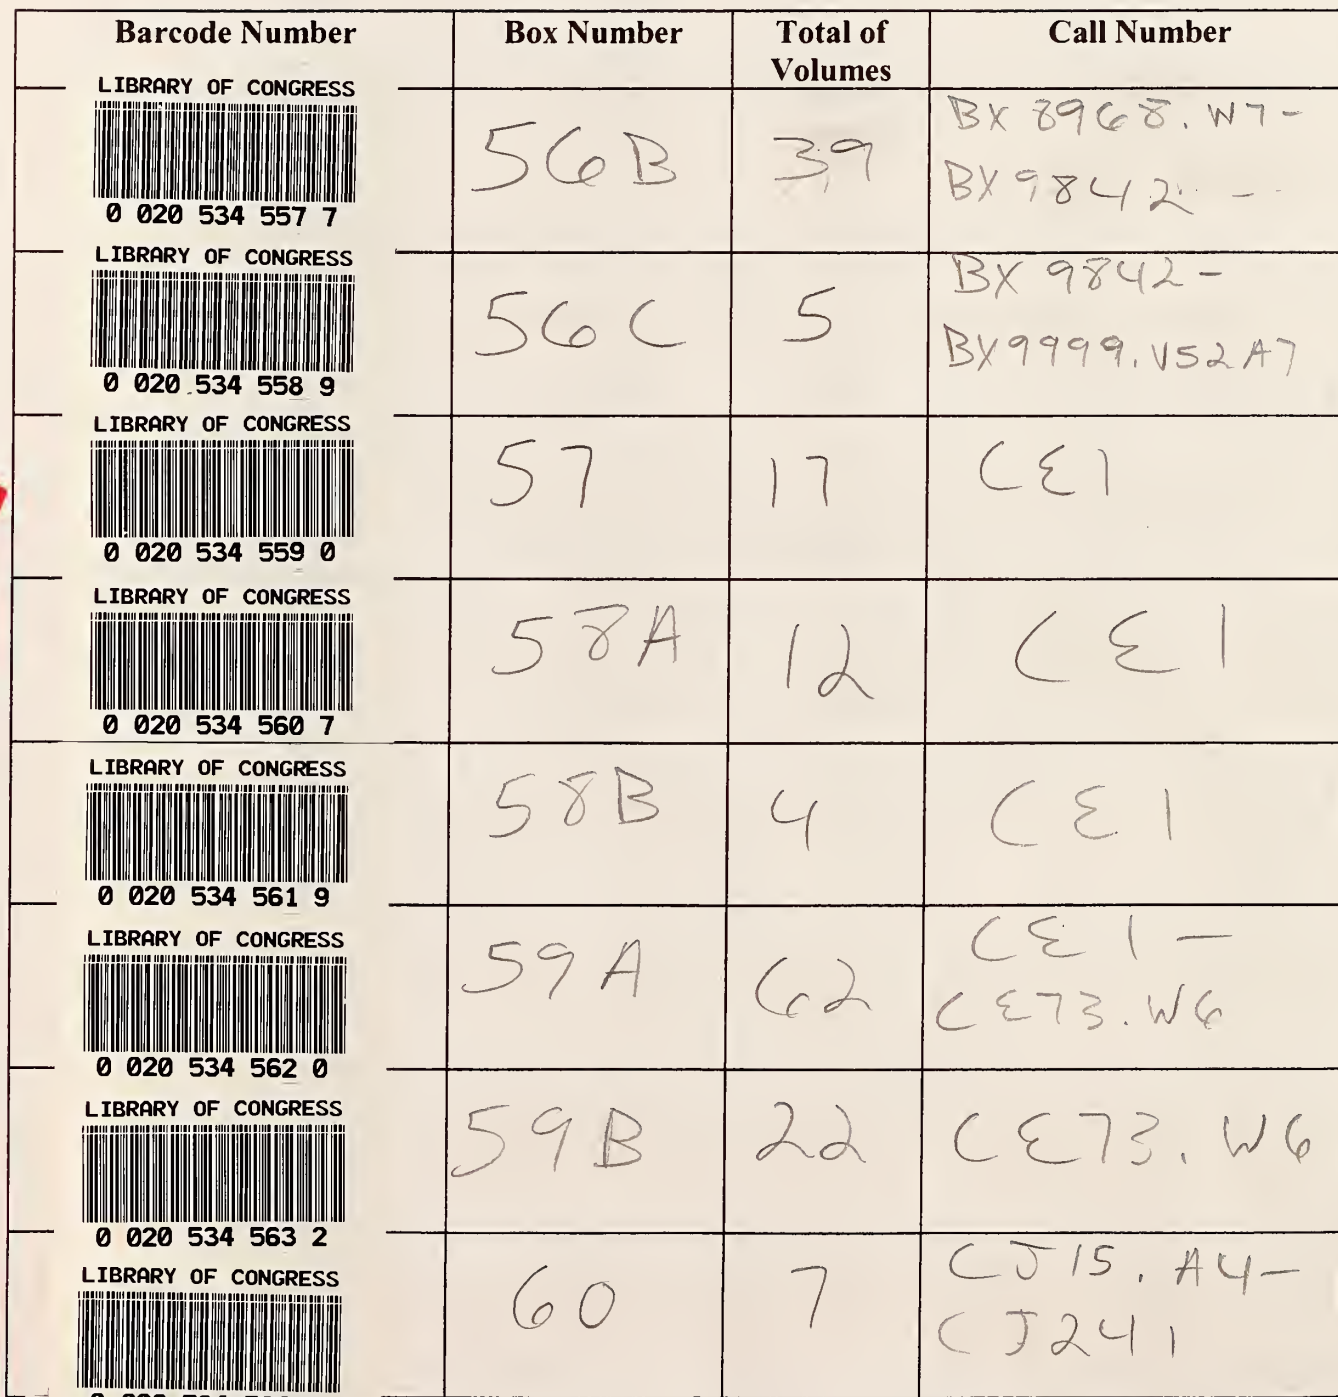 Barcode Number Box Number Total of Volumes Call Number
LIBRARY OF CONGRESS
0 020 534 557 7
56B 39 BX 8968. W7-
BX 9842 -
LIBRARY OF CONGRESS
0 020 534 558 9
56C 5 BX 9842-
BX9999. V52 A7
LIBRARY OF CONGRESS
0 020 534 559 0
57 17 CE1
LIBRARY OF CONGRESS
0 020 534 560 7
58A 12 CE1
LIBRARY OF CONGRESS
0 020 534 561 9
58B 4 CE1
LIBRARY OF CONGRESS
0 020 534 562 0
59A 62 CE1 -
CE73. W6
LIBRARY OF CONGRESS
0 020 534 563 2
59B 22 CE73. W6
LIBRARY OF CONGRESS
60 7 CJ15. A4-
CJ241